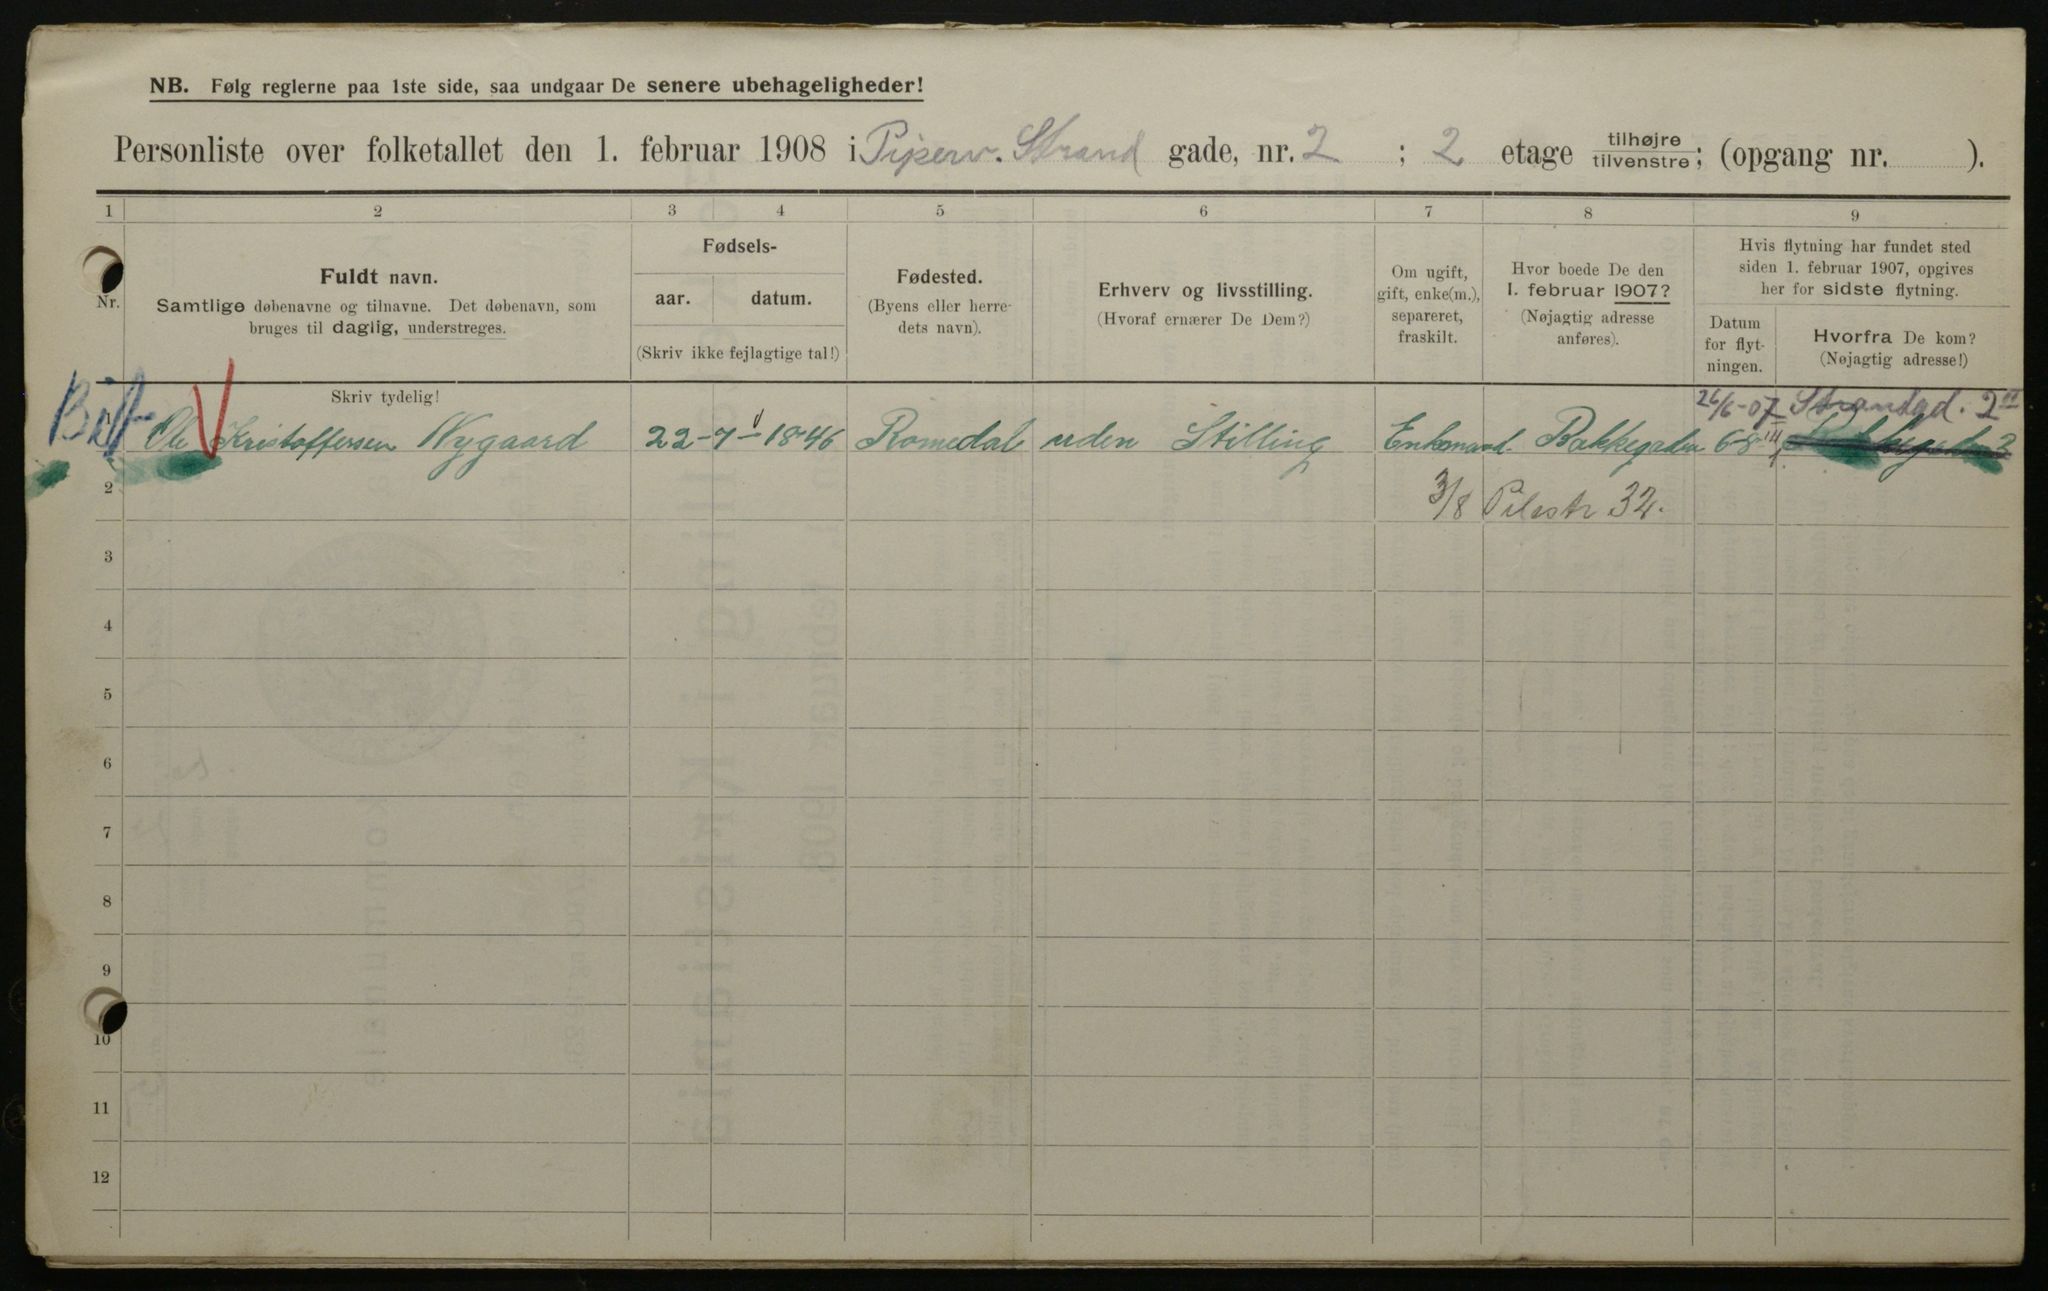 NB. Følg reglerne paa 1ste side, saa undgaar De senere ubehageligheder!
Personliste over folketallet den 1. februar 1908 i Piperv. Strand gade, nr. 2 ; 2 etage tilhøjre tilvenstre; (opgang nr. ).
1 2 3 4 5 6 7 8 9
Nr.
Fuldt navn.
Samtlige døbenavne og tilnavne. Det døbenavn, som
bruges til daglig, understreges.
Skriv tydelig!
Fødsels-
aar. datum.
(Skriv ikke fejlagtige tal!)
Fødested.
(Byens eller herre-
dets navn).
Erhverv og livsstilling.
(Hvoraf ernærer De Dem?)
Om ugift,
gift, enke(m.),
separeret,
fraskilt.
Hvor boede De den
1. februar 1907?
(Nøjagtig adresse
anføres).
Hvis flytning har fundet sted
siden 1. februar 1907, opgives
her for sidste flytning.
Datum
for flyt-
ningen.
Hvorfra De kom?
(Nøjagtig adresse!)
26/6-07 Strandgd. 2 II
Ole Kristoffersen Nygaard 22-7-1846 Romedal uden Stilling Enkemand. Bakkegaden 6-8 III
2 3/8 Pilestr 32.
3
4
5
6
7
8
9
10
11
12